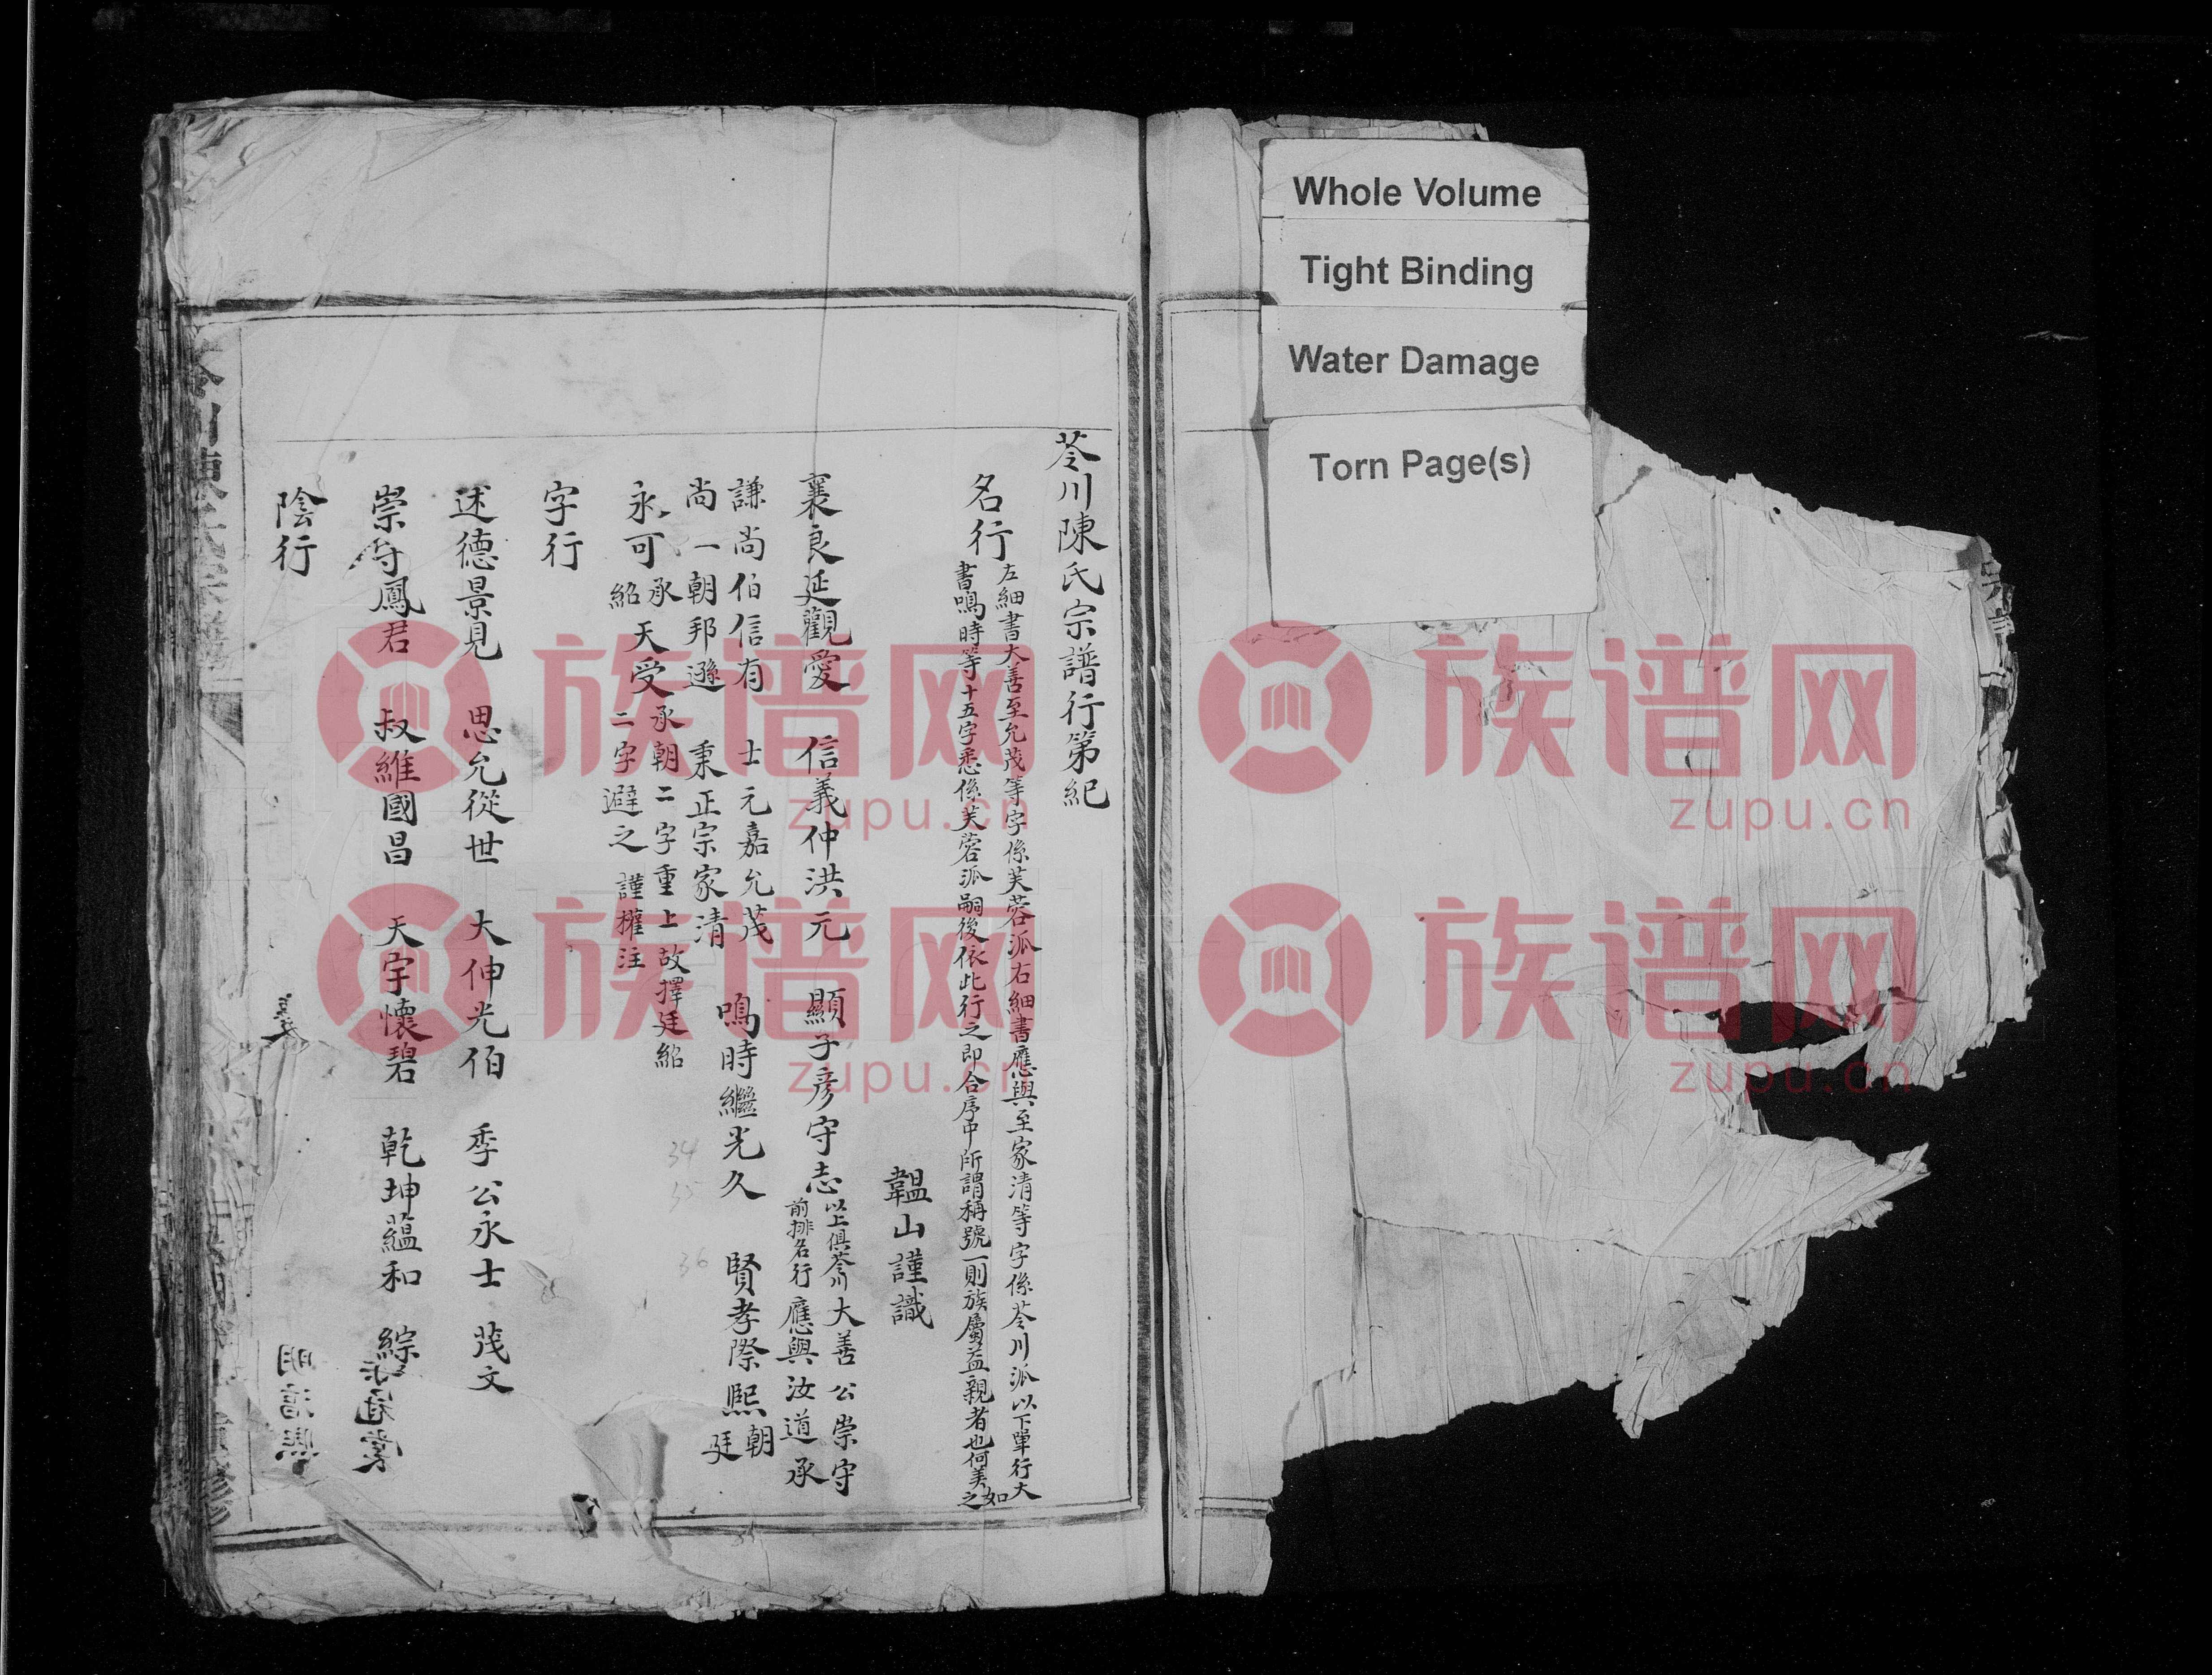 Whole Volume
Tight Binding
Water Damage
Torn Page(s)
苓川陳氏宗譜行第紀
名行
左細書大善至允茂等字係芙蓉派右細書應與至家清等字係苓川派以下單行大
書鳴時等十五字悉係芙蓉派嗣後依此行之即合序中所謂稱號一則族屬益親者也何美如之
韞山謹識
襄良延觀愛 信義仲洪元 顯子彥守志
以上俱苓川
前排名行
大善公崇守
應與汝道承
謙尚伯信有 士元嘉允茂
尚一朝邦遜 秉正宗家清
鳴時繼光久 賢孝際熙朝
廷
永可承天受
紹
承朝二字重上故擇廷紹
二字避之 謹權注
字行
述德景見 思允從世 大伸光伯 季公永士 茂文
崇守鳳君 叔維國昌 天宇懷碧 乾坤蘊和 綜
陰行
34
35
36
族谱网
zupu.cn
族谱网
zupu.cn
族谱网
zupu.cn
族谱网
zupu.cn